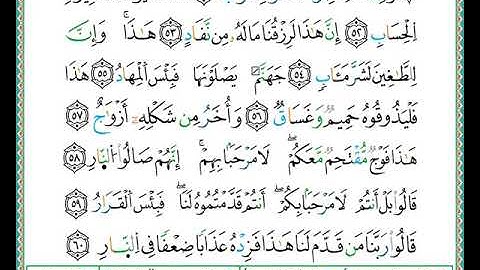 ٱلْحِسَابِ ٥٣ إِنَّ هَٰذَا لَرِزْقُنَا مَالَهُۥ مِن نَّفَادٍ ٥٤ هَٰذَا ۚ وَإِنَّ
لِلطَّٰغِينَ لَشَرَّ مَـَٔابٍ ٥٥ جَهَنَّمَ يَصْلَوْنَهَا فَبِئْسَ ٱلْمِهَادُ ٥٦ هَٰذَا
فَلْيَذُوقُوهُ حَمِيمٌ وَغَسَّاقٌ ٥٧ وَءَاخَرُ مِن شَكْلِهِۦٓ أَزْوَٰجٌ ٥٨
هَٰذَا فَوْجٌ مُّقْتَحِمٌ مَّعَكُمْ ۖ لَا مَرْحَبًۢا بِهِمْ ۚ إِنَّهُمْ صَالُوا۟ ٱلنَّارِ ٥٩
قَالُوا۟ بَلْ أَنتُمْ لَا مَرْحَبًۢا بِكُمْ ۖ أَنتُمْ قَدَّمْتُمُوهُ لَنَا ۖ فَبِئْسَ ٱلْقَرَارُ ٦٠
قَالُوا۟ رَبَّنَا مَن قَدَّمَ لَنَا هَٰذَا فَزِدْهُ عَذَابًا ضِعْفًا فِى ٱلنَّارِ